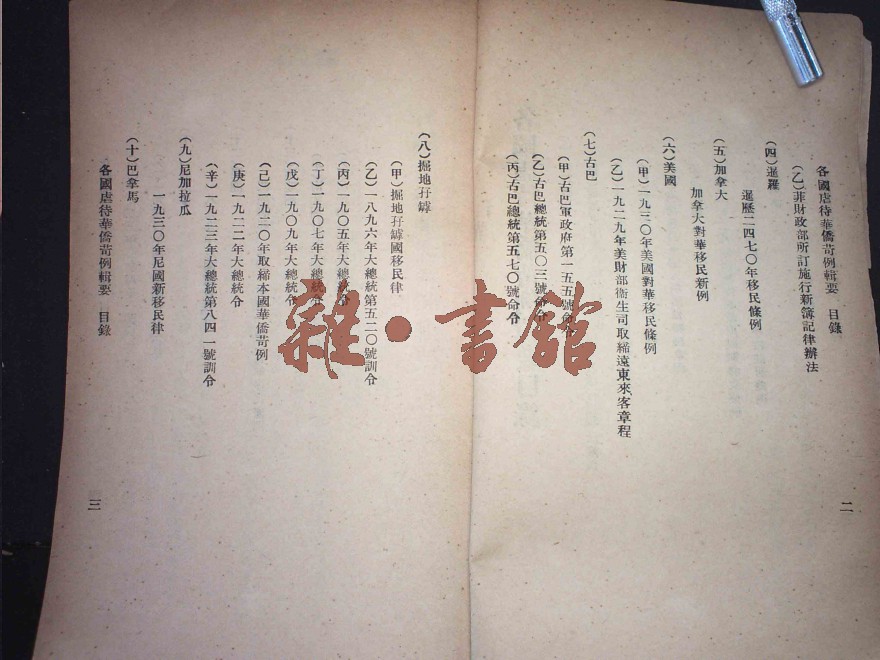 各國虐待華僑苛例輯要　目錄
二
（乙）菲財政部所訂施行新簿記律辦法
（四）暹羅
暹歷二四七〇年移民條例
（五）加拿大
加拿大對華移民新例
（六）美國
（甲）一九三〇年美國對華移民條例
（乙）一九二九年美財部衞生司取締遠東來客章程
（七）古巴
（甲）古巴軍政府第一五五號命令
（乙）古巴總統第五〇三號命令
（丙）古巴總統第五七〇號命令
（八）掘地孖罅
（甲）掘地孖罅國移民律
（乙）一八九六年大總統第五二〇號訓令
（丙）一九〇五年大總統令
（丁）一九〇七年大總統令
（戊）一九〇九年大總統令
（己）一九二〇年取締本國華僑苛例
（庚）一九二二年大總統令
（辛）一九二三年大總統第八四一號訓令
（九）尼加拉瓜
一九三〇年尼國新移民律
（十）巴拿馬
各國虐待華僑苛例輯要　目錄
三
雜·書館